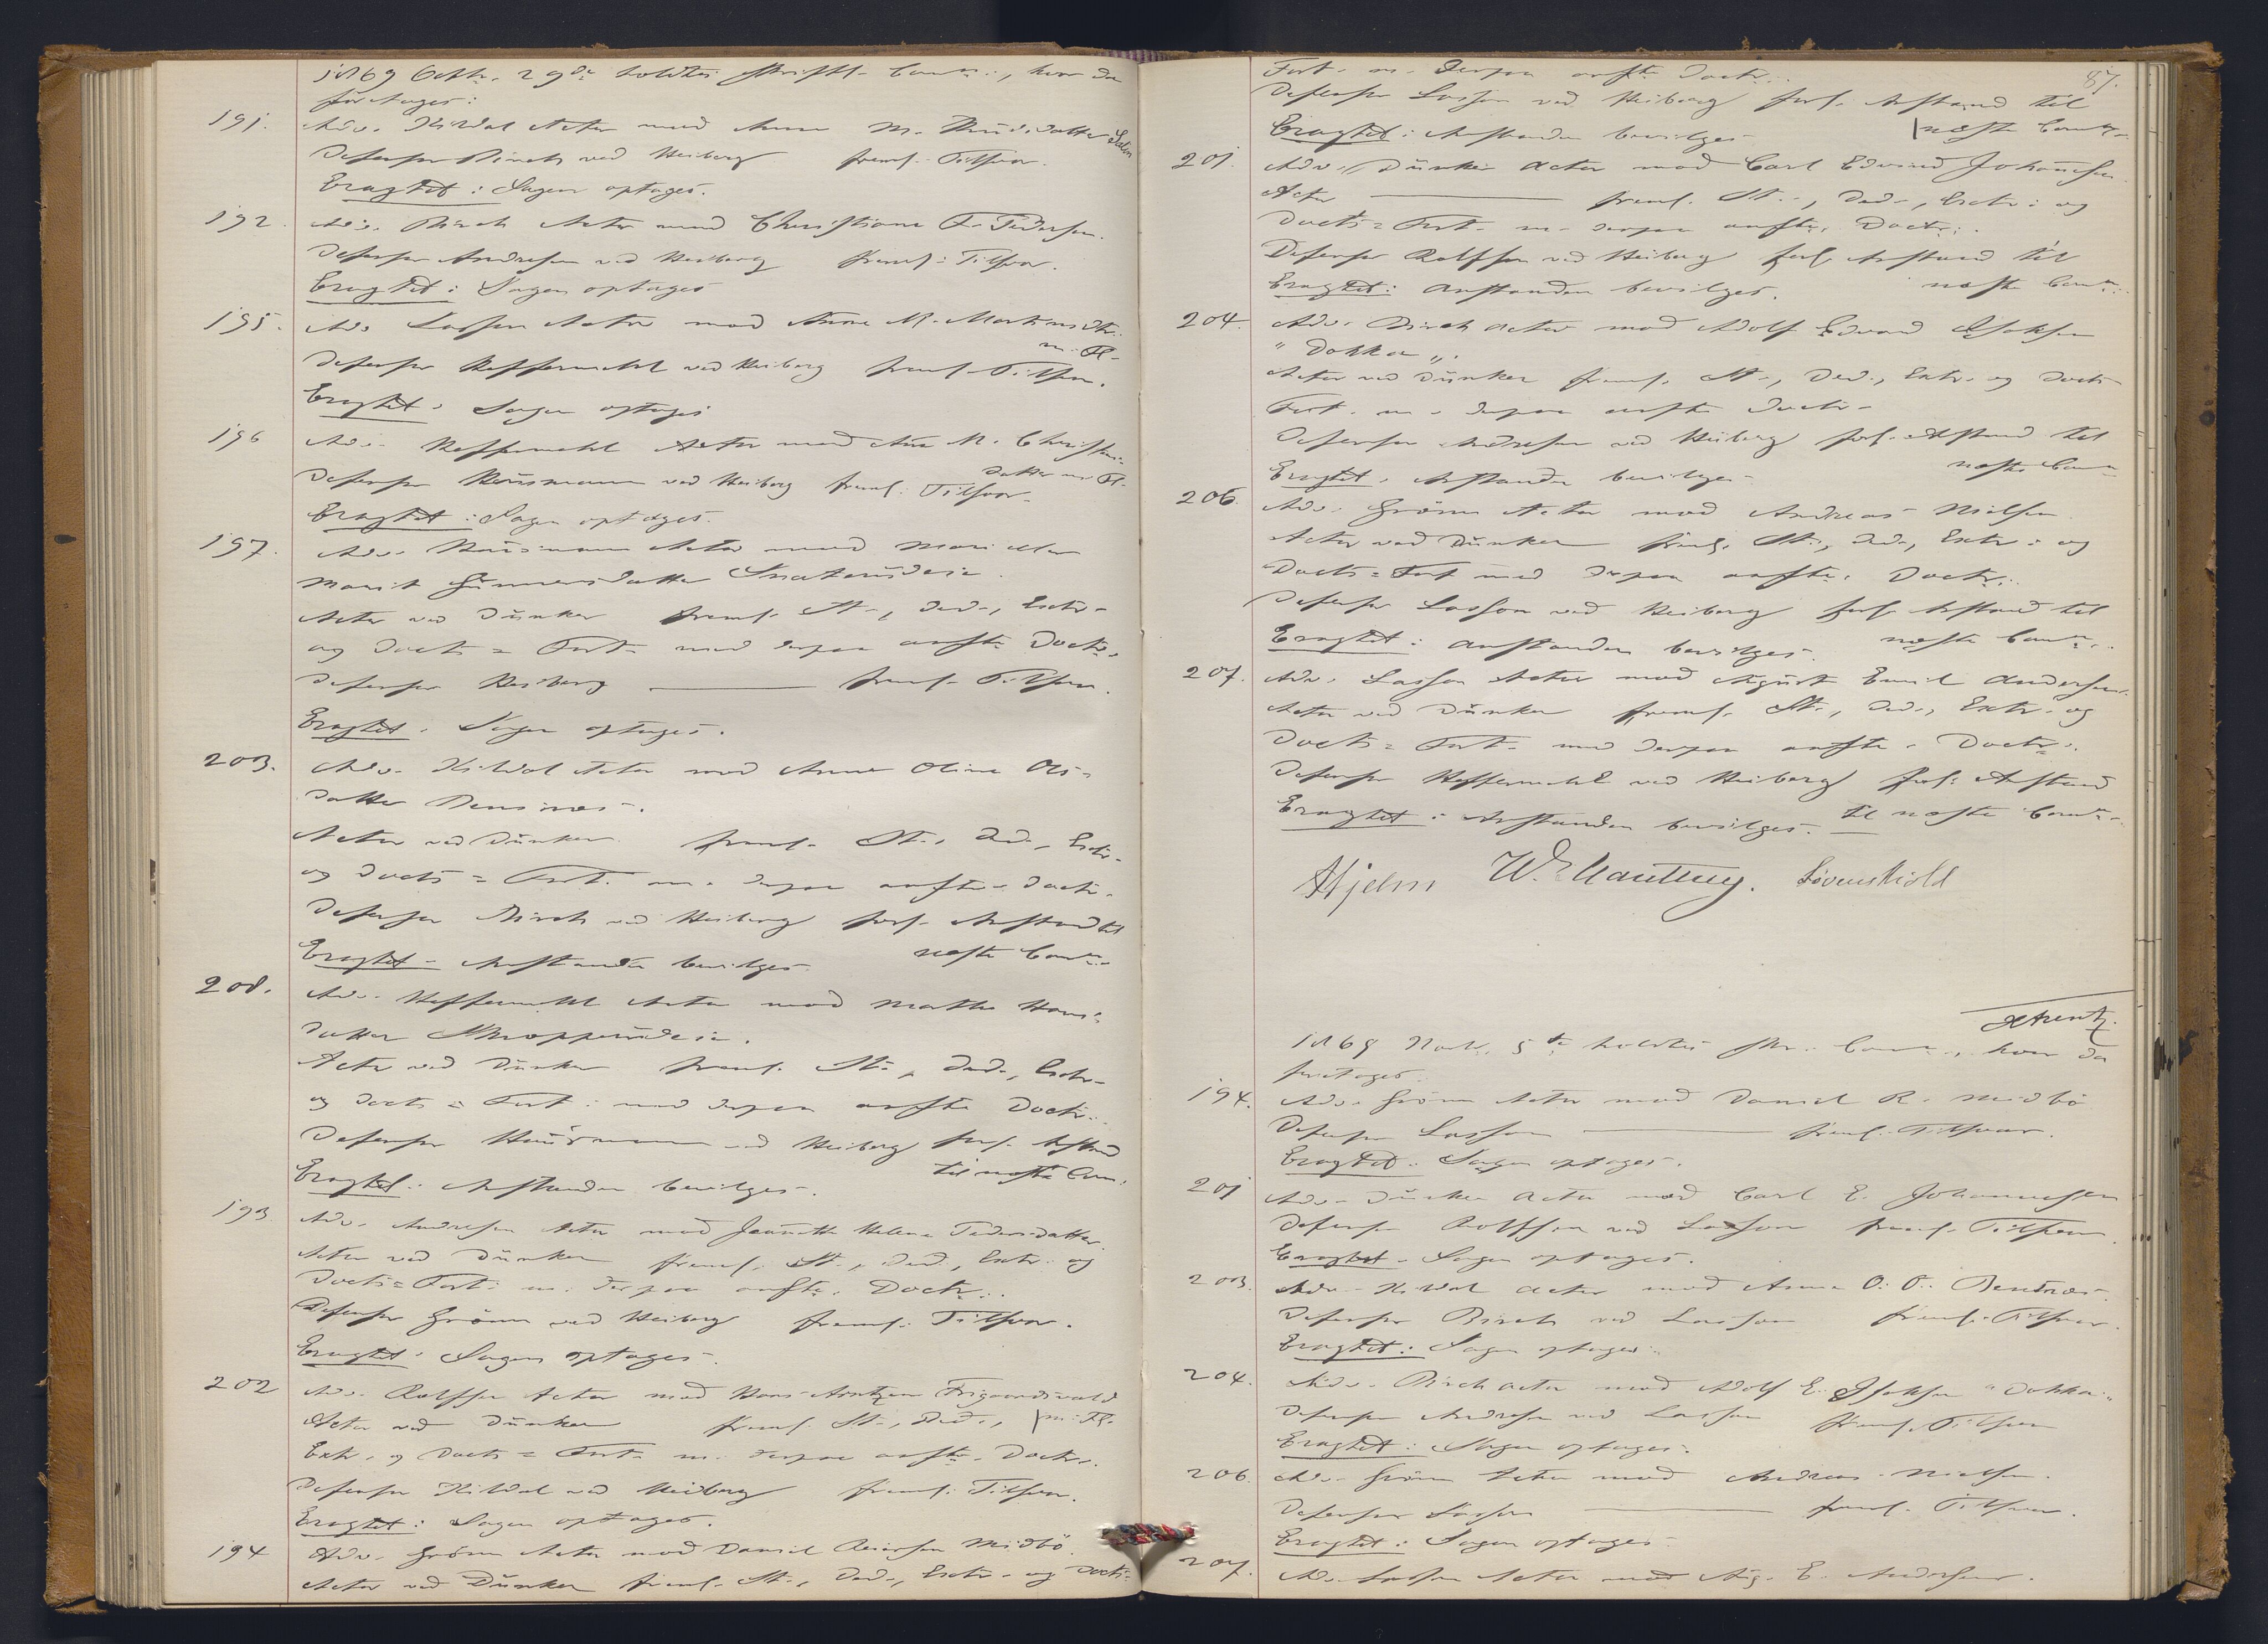 1869 Octbr. 29de holdtes skriftl. Cour.:, hvor da
foretages:
191. Adv. Kildal Actor mod Anne M. Knudsdatter
Defensor Birch ved Heiberg freml. Tilsvar.
Eragtet: Sagen optages.
192. Adv. Birch Actor mod Christiane F. Pedersen.
Defensor Andresen ved Heiberg freml. Tilsvar.
Eragtet: Sagen optages
195. Adv. Lasson Actor mod Anne M. Martinsdtr.
m. Fl.
Defensor Hoffmahl ved Heiberg freml. Tilsvar.
Eragtet: Sagen optages
196 Adv. Heffermehl Actor mod Ane M. Christians-
datter m. Fl.
Defensor Hansmann ved Heiberg freml. Tilsvar.
Eragtet: Sagen optages.
197. Adv. Hansmann Actor mod Mari eller
Marit Gunnersdatter
Actor ved Dunker freml. St., Ded., Extr.
og Docts = Fort. med derpaa anførte Doctr.
Defensor Heiberg freml. Tilsvar.
Eragtet: Sagen optages.
203. Adv. Kildal Actor mod Anne Oline Ols-
datter
Actor ved Dunker freml. St., Ded., Extr.
og Docts = Fort. m. derpaa anførte Doctr.
Defensor Birch ved Heiberg forl. Anstand til
næste Cour.
Eragtet: Anstanden bevilges.
208. Adv. Heffermehl Actor mod Mathe Hans-
datter
Actor ved Dunker freml. St., Ded., Extr.
og Docts = Fort. med derpaa anførte Doctr.
Defensor Hansmann ved Heiberg forl. Anstand
til næste Cour.
Eragtet: Anstanden bevilges.
193 Adv. Andresen Actor mod Jeanette Helene Pedersdatter.
Actor ved Dunker freml. St., Ded., Extr. og
Docts = Fort. m. derpaa anførte Doctr.
Defensor Grönn ved Heiberg freml. Tilsvar.
Eragtet: Sagen optages.
202 Adv. Rolfsen Actor mod Hans Arntzen
m. Fl.
Actor ved Dunker freml. St., Ded.,
Extr. og Docts = Fort. m. derpaa anførte Doctr.
Defensor Kildal ved Heiberg freml. Tilsvar.
Eragtet: Sagen optages.
194 Adv. Grönn Actor mod Daniel Reiersen Midbö.
Actor ved Dunker freml. St., Ded., Extr. og Docts-
87.
Fort. m. derpaa anførte Doctr.
Defensor Lasson ved Heiberg forl. Anstand til
næste Cour.
Eragtet: Anstanden bevilges.
201. Adv. Dunker Actor mod Carl Edvard Johannesen.
Actor freml. St., Ded., Extr. og
Docts = Fort. m. derpaa anførte Doctr.
Defensor Rolfsen ved Heiberg forl. Anstand til
næste Cour.
Eragtet: Anstanden bevilges.
204. Adv. Birch Actor mod Adolf Edvard Isaksen
"Dokka".
Actor ved Dunker freml. St., Ded., Extr. og Docts
Fort. m. derpaa anførte Doctr.
Defensor Andresen ved Heiberg forl. Anstand til
næste Cour.
Eragtet: Anstanden bevilges.
206. Adv. Grönn Actor mod Andreas Nielsen
Actor ved Dunker freml. St., Ded., Extr. og
Docts = Fort med derpaa anførte Doctr.
Defensor Lasson ved Heiberg forl. Anstand til
næste Cour.
Eragtet: Anstanden bevilges.
207. Adv. Lasson Actor mod August Emil Andersen.
Actor ved Dunker freml. St., Ded., Extr. og
Docts = Fort. med derpaa anførte Doctr.
Defensor Heffermehl ved Heiberg forl. Anstand
til næste Cour.
Eragtet: Anstanden bevilges.
Hjelm Løvenskiold
1869 Novbr. 5te holdtes skr. Cour., hvor da
foretages.
194. Adv. Grönn Actor mod Daniel R. Midbö
Defensor Lasson freml. Tilsvar.
Eragtet: Sagen optages.
201 Adv. Dunker Actor mod Carl E. Johannesen
Defensor Rolfsen ved Lasson freml. Tilsvar.
Eragtet: Sagen optages.
203. Adv. Kildal Actor mod Anne O. O.
Defensor Birch ved Lasson freml. Tilsvar.
Eragtet: Sagen optages.
204. Adv. Birch Actor mod Adolf E. Isaksen "Dokka"
Defensor Andresen ved Lasson freml. Tilsvar
Eragtet: Sagen optages.
206. Adv. Grönn Actor mod Andreas Nielsen.
Defensor Lasson freml. Tilsvar.
Eragtet: Sagen optages
207. Adv. Lasson Actor mod Aug. E. Andersen.